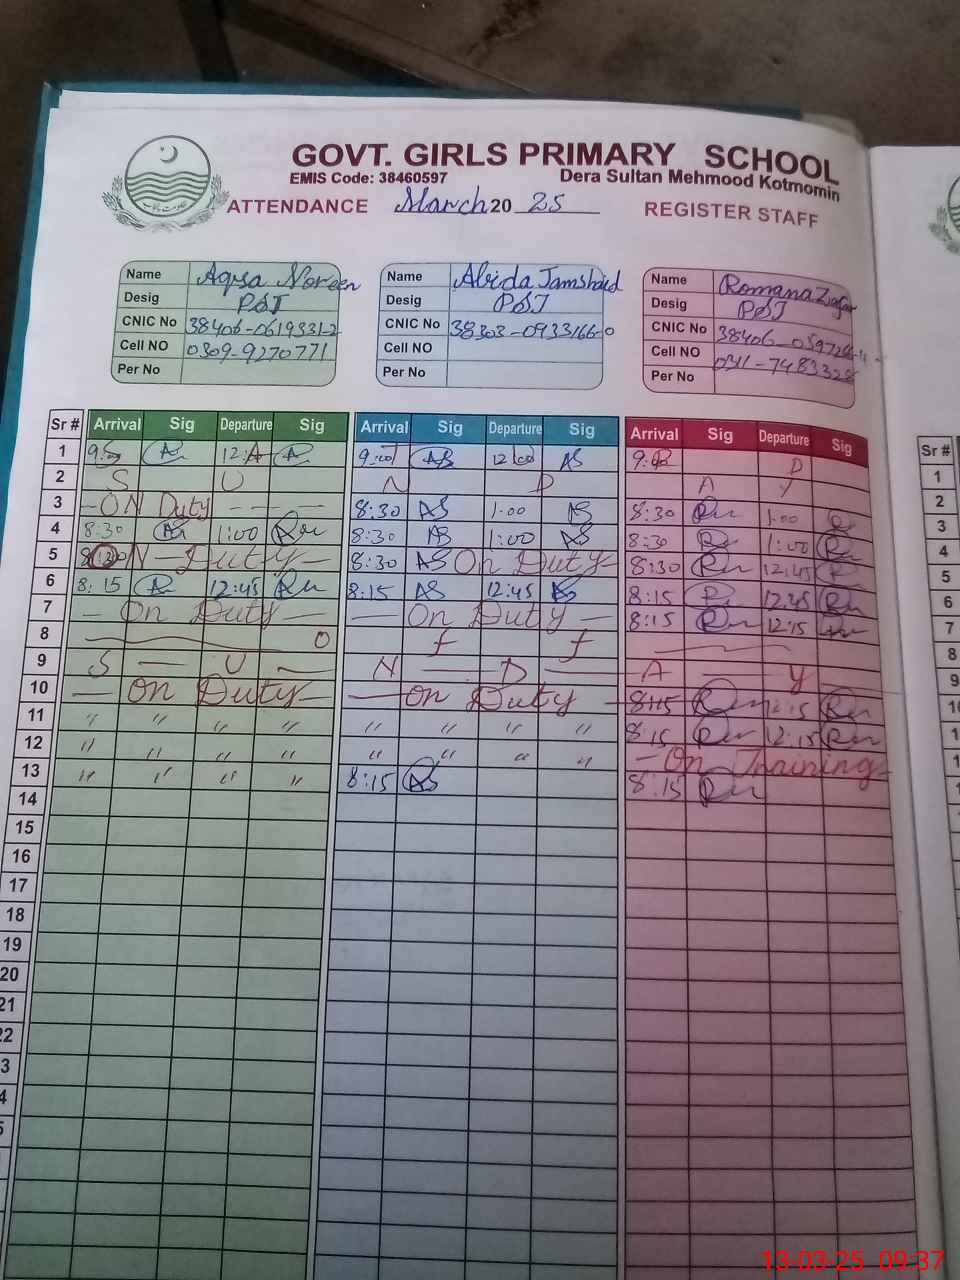 GOVT. GIRLS PRIMARY SCHOOL
EMIS Code: 38460597 Dera Sultan Mehmood Kotmomin
ATTENDANCE March 20 25 REGISTER STAFF
Name Aqsa Noreen
Desig PST
CNIC No 38406-0619331-2
Cell NO 0309-9270771
Per No
Name Abida Jamshaid
Desig PST
CNIC No 38303-0933166-0
Cell NO
Per No
Name Romana Zafar
Desig PST
CNIC No 38406-
Cell NO 0311-7483328
Per No
Sr # Arrival Sig Departure Sig Arrival Sig Departure Sig Arrival Sig Departure Sig Sr #
1 9:00 AS 12:00 AS D 1
2 S U N D A Y 2
3 -ON Duty 8:30 AS 1:00 AS 8:30 Rm 1:00 R 3
4 8:30 1:00 Rm 8:30 AS 1:00 AS 8:30 Rm 1:00 Rm 4
5 ON-Duty- 8:30 AS On Duty- 8:30 Rm 12:45 R 5
6 8:15 12:45 Rm 8:15 AS 12:45 AS 8:15 R 12:45 Rm 6
7 - On Duty - - On Duty - 8:15 Rm 12:15 Rm 7
8 O f f 8
9 S - U - N - D - A - Y 9
10 - On Duty - - On Duty - 8:15 Rm 12:15 Rm
11 " " " " " " " " 8:15 Rm 12:15 Rm
12 " " " " " " " " - On Training -
13 " " " " 8:15 AS 8:15 Rm
14
15
16
17
18
19
20
21
22
3
4
5
13-03-25 09:37